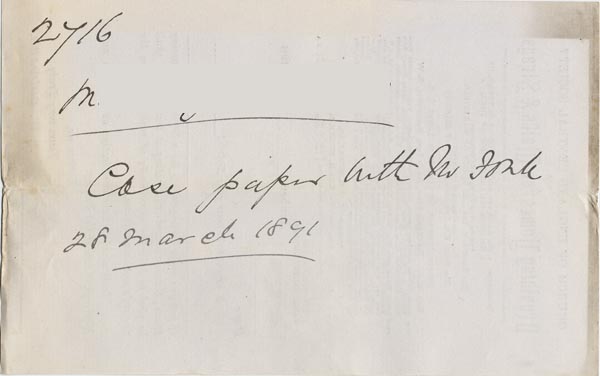 2716
M
Case paper with Mr
28 March 1891